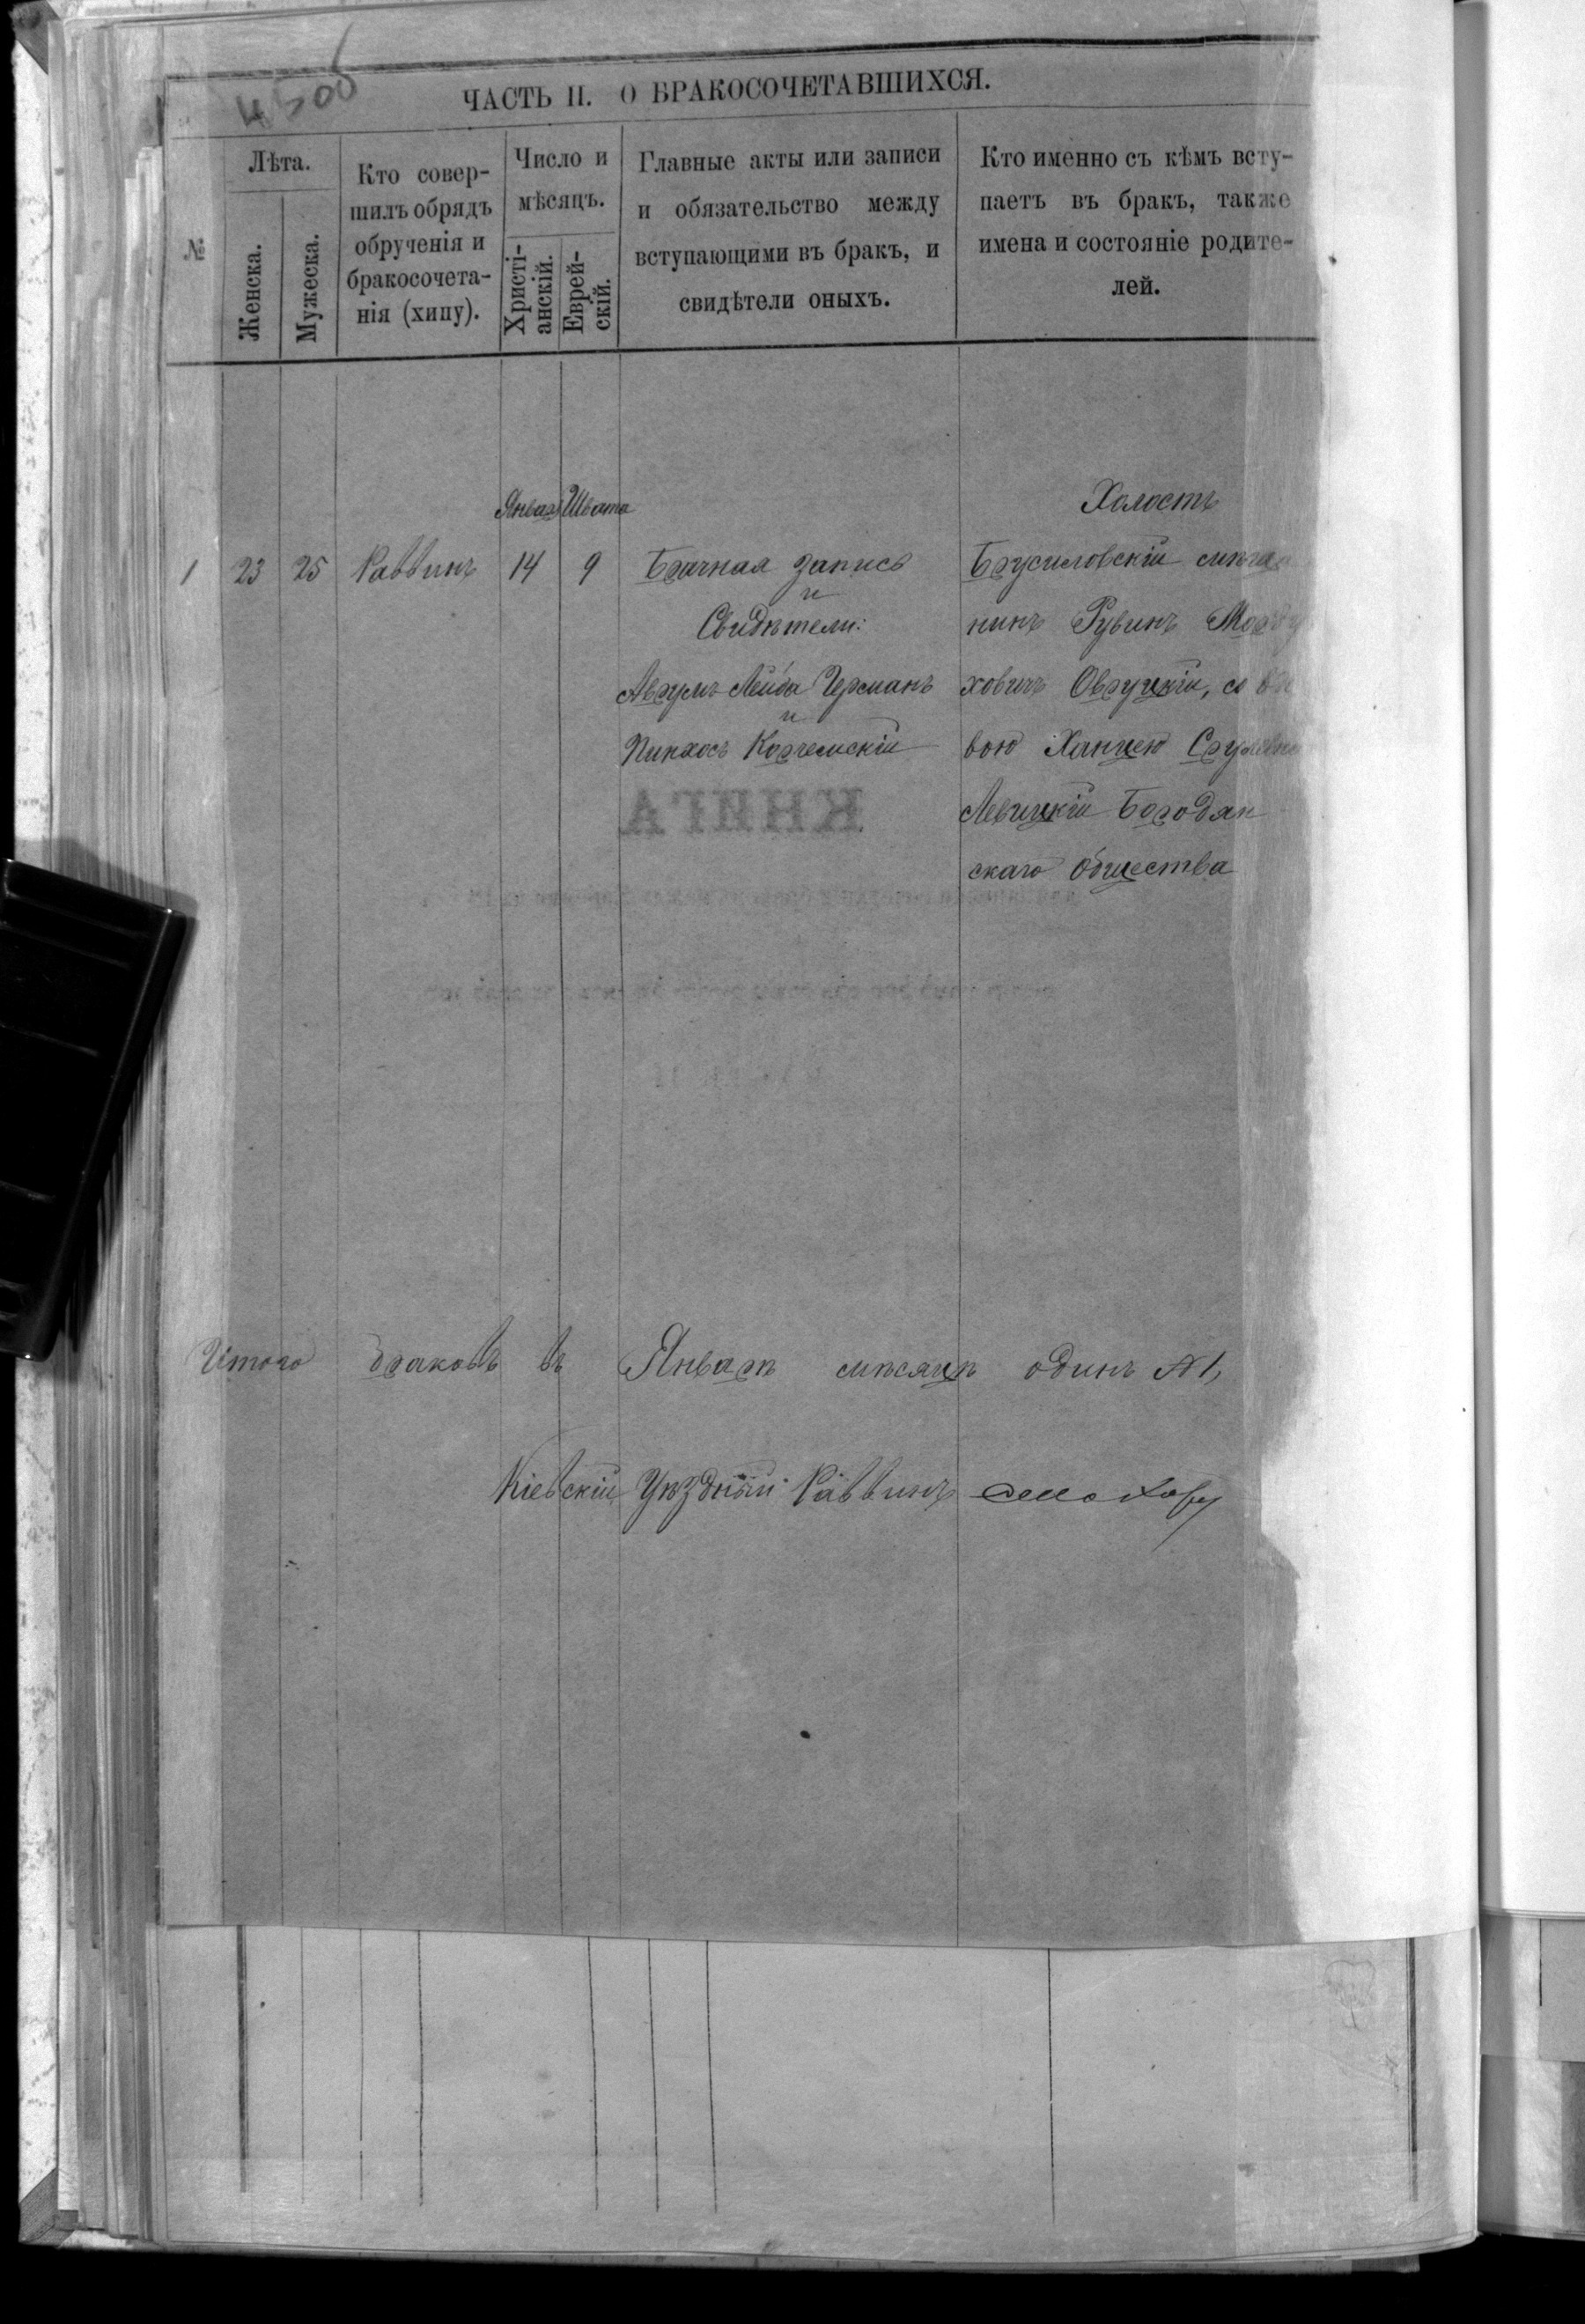 ЧАСТЬ II. О БРАКОСОЧЕТАВШИХСЯ.
№
Лѣта.
Женска.
Мужеска.
Кто совер-
шилъ обрядъ
обрученія и
бракосочета-
нія (хипу).
Число и
мѣсяцъ.
Христі-
анскій.
Еврей-
скій.
Главные акты или записи
и обязательство между
вступающими въ бракъ, и
свидѣтели оныхъ.
Кто именно съ кѣмъ всту-
паетъ въ бракъ, также
имена и состояніе родите-
лей.
Январь Швата
1 23 25 Раввинъ 14 9
Брачная запись
и
Свидѣтели:
Аврумъ-Лейба Черманъ
и
Пинхосъ Корчемскій
Холостъ
Брусиловскій мѣща
нинъ Рувинъ Морду
ховичъ Овруцкій, со вдо
вою Ханцею Срулевн
Левицкій Бородян
скаго общества
КНИГА
Итого браковъ въ Январѣ мѣсяцѣ одинъ №1,
Кіевскій Уѣздный Раввинъ